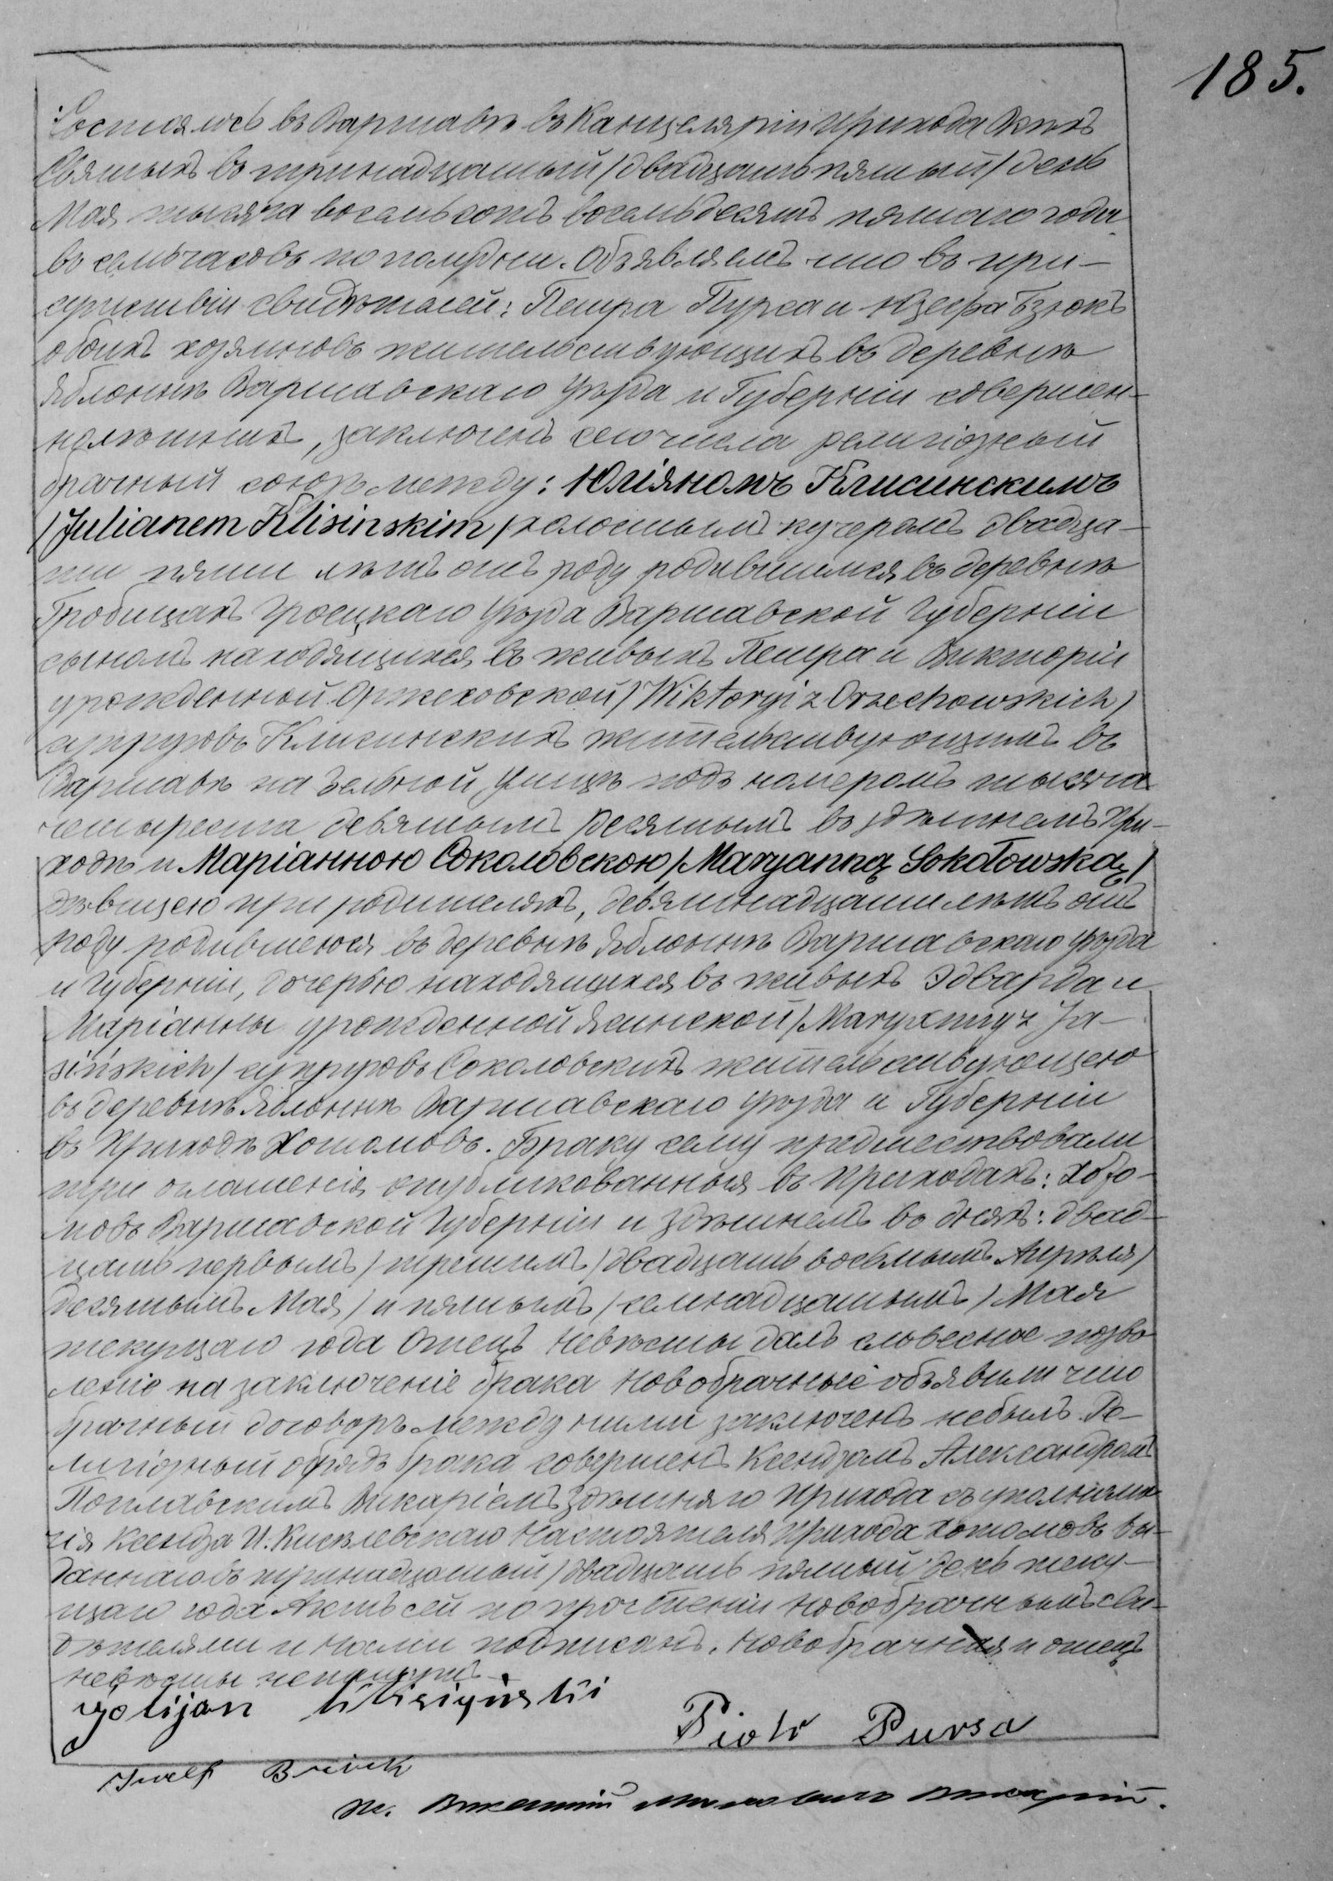 185.
Состоялось въ Варшавѣ въ Канцеляріи Прихода Всѣхъ
Святыхъ въ тринадцатый /двадцать пятый/ день
Мая тысяча восемьсотъ восемьдесятъ пятаго года
въ семь часовъ по полудни. Объявляемъ что въ при-
сутствіи свидѣтелей: Петра Пурса и Юзефа Бзюкъ
обоихъ хозяиновъ жительствующихъ въ деревнѣ
Яблоннѣ Варшавскаго уѣзда и Губерніи совершен-
нолѣтнихъ, заключенъ сего числа религіозный
брачный союзъ между: Юліяномъ Клисинскимъ
/Julianem Klisinskim/ холостымъ кучеромъ двадца-
ти пяти лѣтъ отъ роду родившимся въ деревнѣ
Гробицахъ Гроецкаго уѣзда Варшавской Губерніи
сыномъ находящихся въ живыхъ Петра и Викторіи
урожденной Оржеховской /Wiktoryi z Orzechowskich/
супруговъ Клисинскихъ жительствующимъ въ
Варшавѣ на улицѣ подъ номеромъ тысяча
четыреста девятымъ десятымъ въ здѣшнемъ При-
ходѣ и Маріанною Соколовскою /Maryanną Sokołowską/
дѣвицею при родителяхъ, девятнадцати лѣтъ отъ
роду родившеюся въ деревнѣ Яблоннѣ Варшавскаго уѣзда
и Губерніи, дочерью находящихся въ живыхъ Эдварда и
Маріанны урожденной Ясинской /Maryanny z Ja-
sińskich/ супруговъ Соколовскихъ жительствующею
въ деревнѣ Яблоннѣ Варшавскаго уѣзда и Губерніи
въ Приходѣ Хотомовъ. Браку сему предшествовали
три оглашенія опубликованныя въ Приходахъ: Хото-
мовъ Варшавской Губерніи и здѣшнемъ въ дняхъ: двад-
цать первымъ /третьимъ/ двадцать восьмымъ Апрѣля/
десятымъ Мая/ и пятымъ /семнадцатымъ/ Мая
текущаго года Отецъ Невѣсты далъ словесное позво
леніе на заключеніе брака Новобрачные объявили что
брачный договоръ между ними заключенъ небылъ. Ре-
лигіозный обрядъ брака совершенъ Ксендзомъ Александромъ
Поплавскимъ Викаріемъ здѣшняго Прихода съ уполномо
чія Ксендза И. Настоятеля Прихода Хотомовъ вы-
даннаго въ тринадцатый /двадцать пятый/ день теку-
щаго года Актъ сей по прочтеніи Новобрачнымъ сви-
дѣтелями и Нами подписанъ. Новобрачная и отецъ
невѣсты неграмотны
Jolijan Klisiński
Piotr Pursa
Józef Bziuk